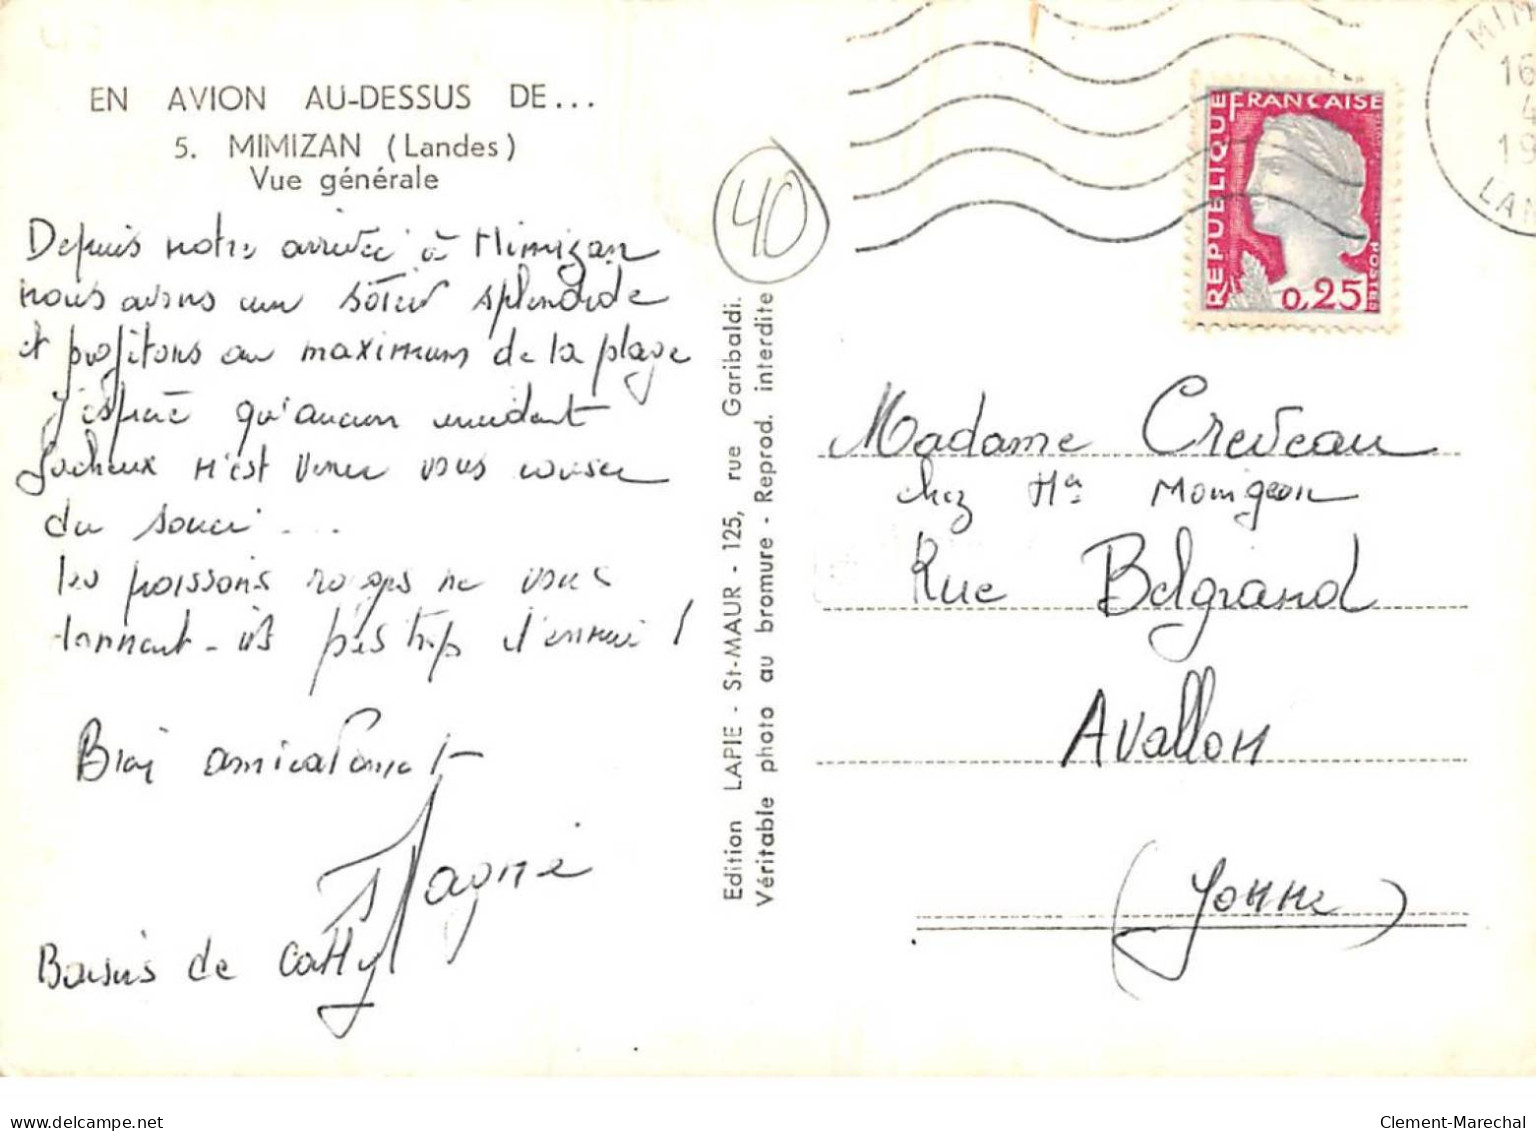 EN AVION AU-DESSUS DE...
5. MIMIZAN (Landes)
Vue générale
Depuis notre arrivée à Mimizan
nous avons un soleil splendide
et profitons au maximum de la plage
J'espère qu'aucun incident
facheux n'est venu vous causer
du souci ...
les poissons rouges ne vous
donnent-ils pas trop d'ennui !
Bien amicalement
Magné
Baisers de Cathy
40
Edition LAPIE - St-MAUR - 125, rue Garibaldi.
Véritable photo au bromure - Reprod. interdite
REPUBLIQUE FRANÇAISE
POSTES
0,25
MIM
16
4
19
LAN
Madame Creveau
chez Me Mongeon
Rue Belgrand
Avallon
(Yonne)
Clement-Marechal